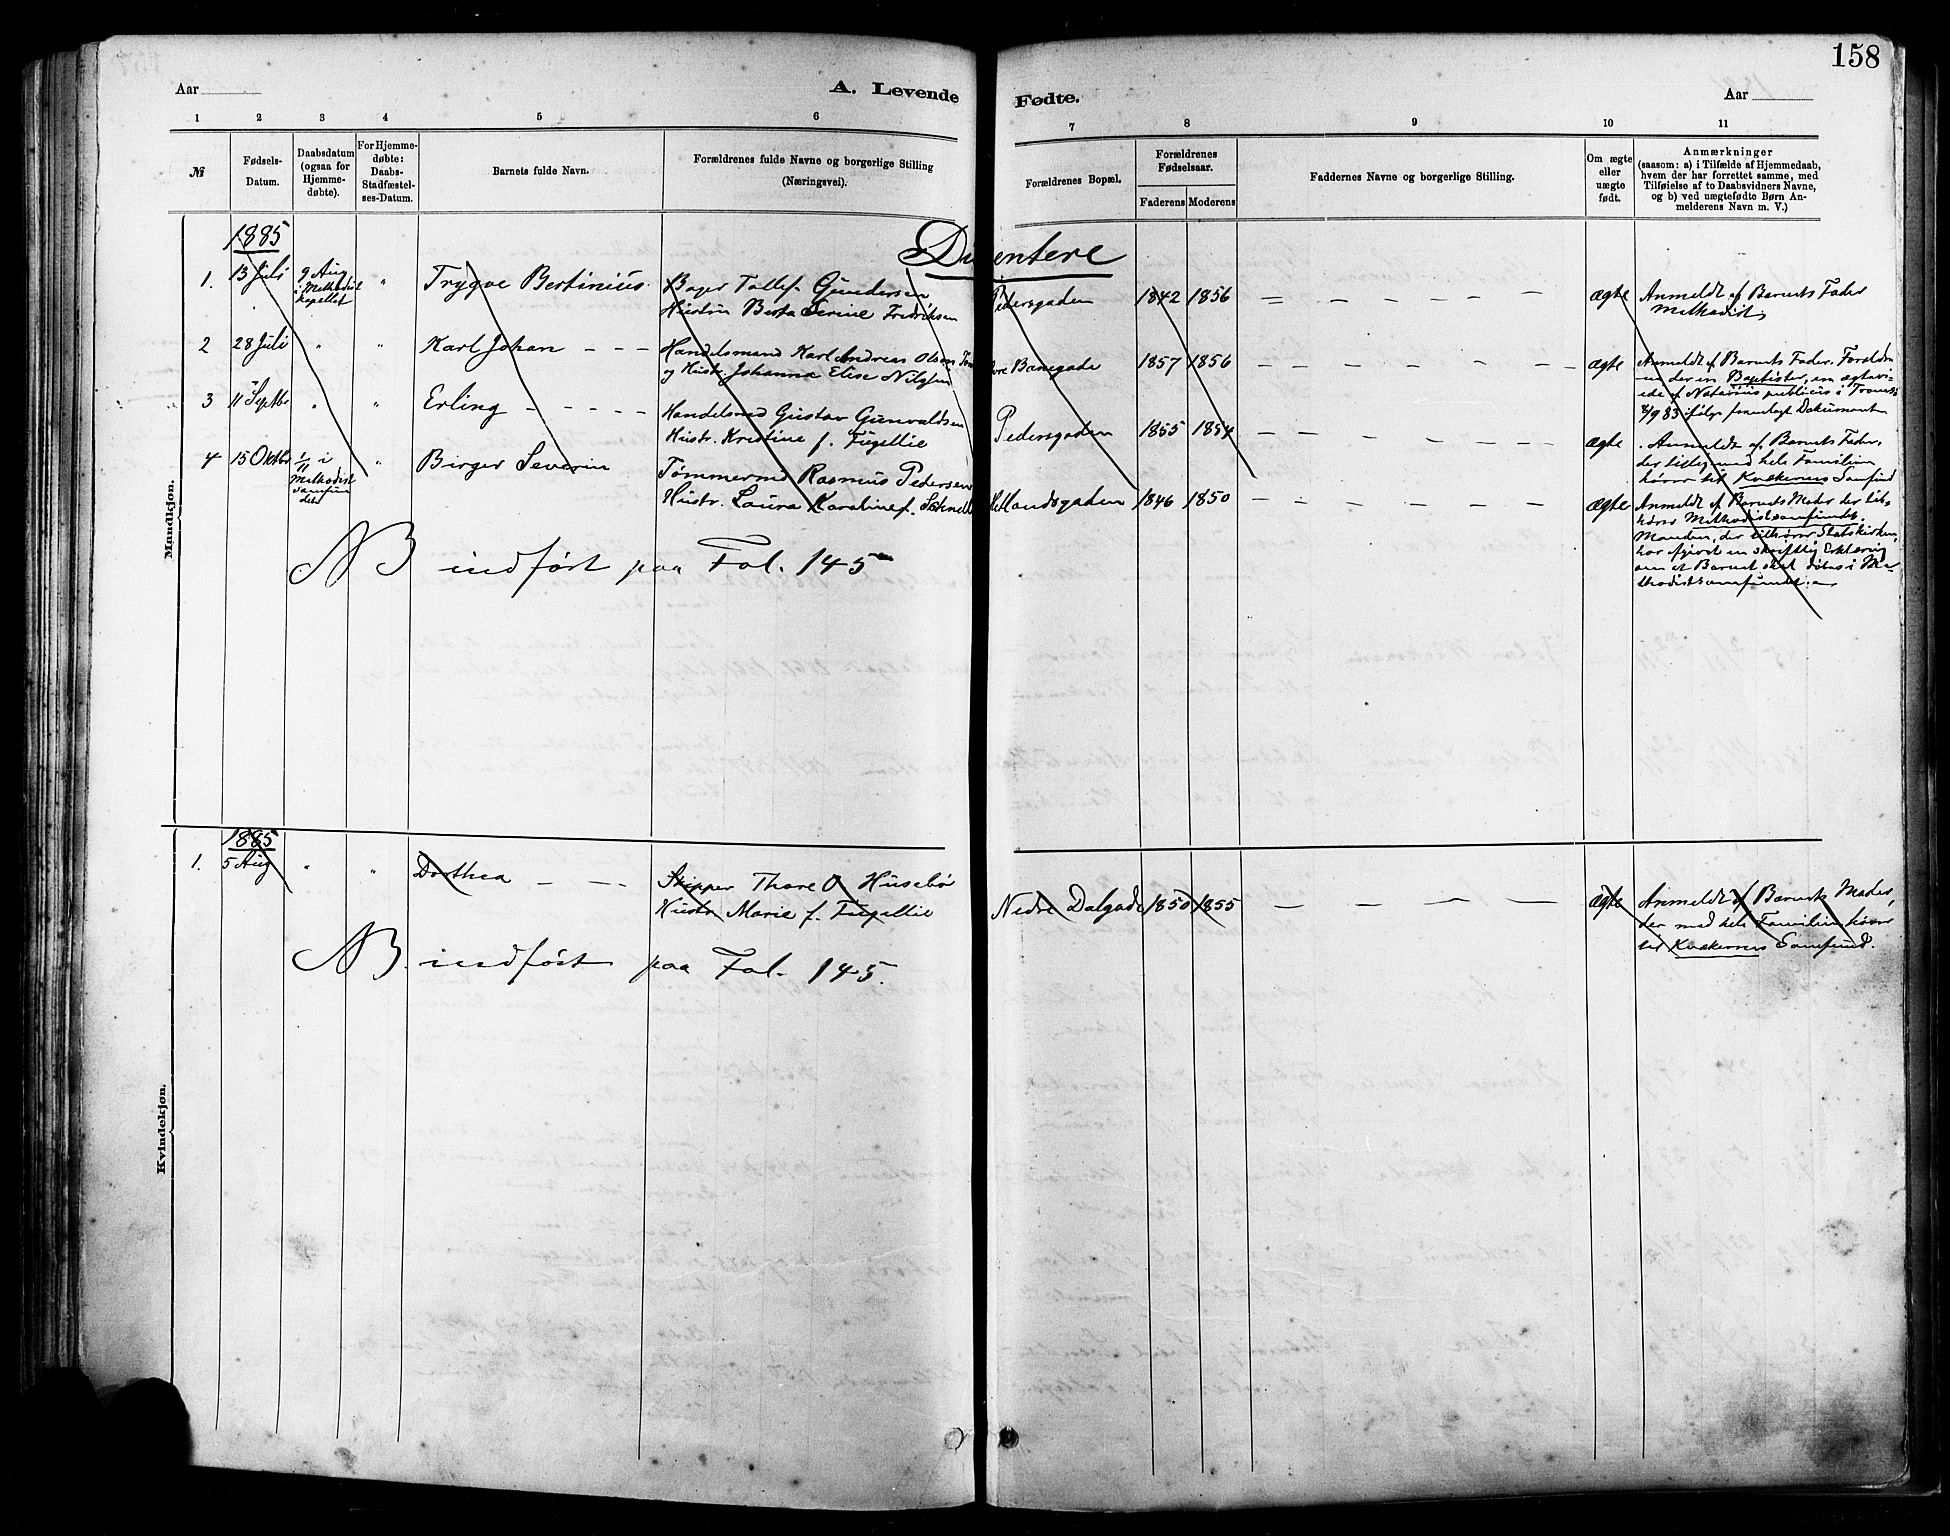 158
Aar
A. Levende
Fødte.
Aar
1 2 3 4 5 6 7 8 9 10 11
№
Fødsels-
Datum.
Daabsdatum
(ogsaa for
Hjemme-
døbte).
For Hjemme-
døbte:
Daabs-
Stadfæstel-
ses-Datum.
Barnets fulde Navn.
Forældrenes fulde Navne og borgerlige Stilling
(Næringsvei).
Forældrenes Bopæl.
Forældrenes
Fødselsaar.
Faderens Moderens
Faddernes Navne og borgerlige Stilling.
Om ægte
eller
uægte
født.
Anmærkninger
(saasom: a) i Tilfælde af Hjemmedaab,
hvem der har forrettet samme, med
Tilføielse af to Daabsvidners Navne,
og b) ved uægtefødte Børn An-
melderens Navn m. V.)
Mandkjøn.
1885
Di entere
1. 13 Juli 9 Aug. " Trygve Bertinius Bager Tollef Gundersen Pedersgaden 1842 1856 = — — — — — ægte Anmeldt af Barnets Fader
i Methodist
kapellet
Hustru Berta Serine Fredriksen
Methodist
2 28 Juli " " Karl Johan — — — Handelsmand Karl Andreas Olsen
og Hustr. Johanna Elise Nilssen
Banegade 1857 1856 — — — — — — ægte Anmeldt af Barnets Fader. Foreldre
ne der en Baptister, en
af Notarius publicus i
83 ifølge fremlagt Dokument
3 11 Septbr " " Erling — — — — — Handelsmd Gustav Gunvaldsen
Hustr. Kristine f. Fugellie
Pedersgaden 1855 1854 — — — — — — ægte Anmeldt af Barnets Fader,
der tillig med hele Familien
hører til Kvækernes Samfund
4 15 Oktbr 1/11 i " Birger Severin Tømmermd Rasmus Pedersen
Methodist
samfun
det
Hustr. Laura Karoline f.
Hetlandsgaden 1846 1850 — — — — — — ægte Anmeldt af Barnets Moder der til-
hører Methodistsamfundet.
Manden, der tilhører Statskirken,
har afgivet en skriftlig Erklæring
om at Barnet skal døbes i Me-
thodistsamfundet.
NB indført paa Fol. 145
Kvindekjøn.
1885
1. 5 Aug " " Dorthea — — — Skipper Thore O Husebø
Hustr Marie f. Fugellie
Nedre Dalgade 1850 1855 — — — — — ægte Anmeldt af Barnets Moder,
der med hele Familien hører
til Kvækernes Samfund.
NB. indført paa Fol. 145.